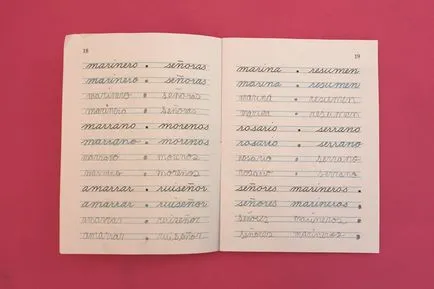 18
marinero • señoras
marinero • señoras
marinero • señoras
marinero • señoras
marrano • morenos
marrano • morenos
marrano • morenos
marrano • morenos
amarrar • ruiseñor
amarrar • ruiseñor
amarrar • ruiseñor
amarrar • ruiseñor
19
marina • resumen
marina • resumen
marina • resumen
marina • resumen
rosario • serrano
rosario • serrano
rosario • serrano
rosario • serrano
señores marineros •
señores marineros •
señores marineros •
señores marineros •